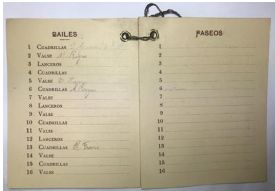 BAILES
1 CUADRILLAS
2 VALSE
3 LANCEROS
4 CUADRILLAS
5 VALSE
6 CUADRILLAS
7 VALSE
8 LANCEROS
9 VALSE
10 CUADRILLAS
11 VALSE
12 LANCEROS
13 CUADRILLAS
14 VALSE
15 VALSE
16 VALS
PASEOS
1
2
3
4
5
6
7
8
9
10
11
12
13
14
15
16